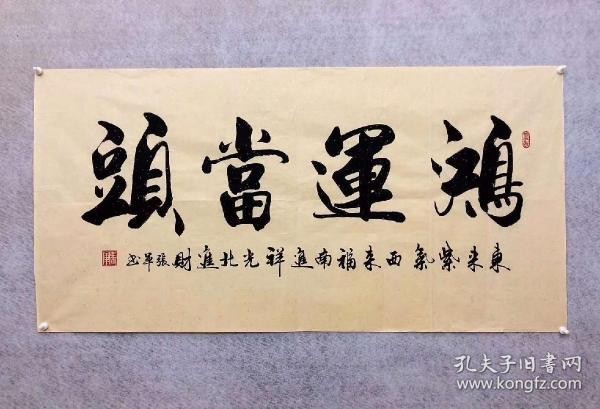 鴻運當頭
東来紫氣西来福南進祥光北進財張軍書
孔夫子旧书网
www.kongfz.com